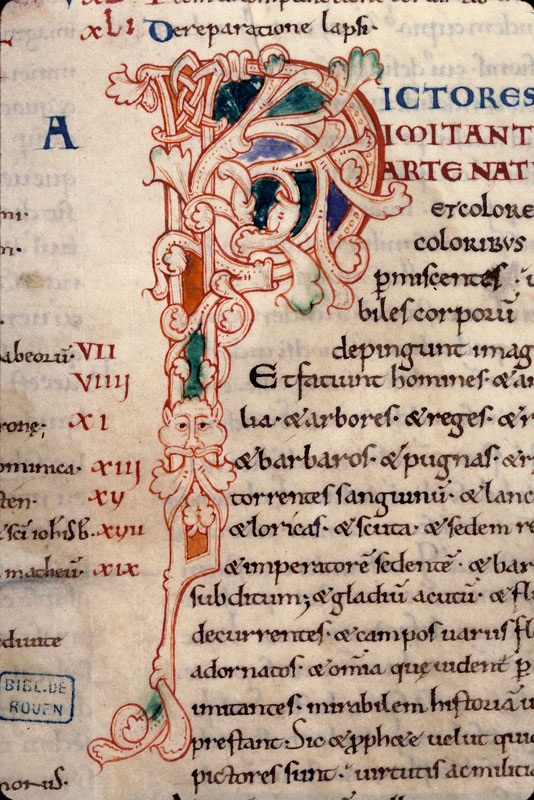 XLI Dereparatione lapsi.
A
PICTORES
IMITANT
ARTE NAT
ETCOLORE
COLORIBVS
pmiscentes
biles corporū
depingunt imag
Etfatiunt homines· & an
lia· & arbores· & reges· & r
& barbaros· & pugnas· & r
torrentes sanguinū· & lanc
& loricas· & scuta· & sedem re
& imperatorē sedentē· & bar
subditum; & gladiū acutū· & flu
decurrentes· & campos uariis fl
adornatos· & om̄ia quę uident p
imitantes· mirabilem historiā u
prestant Sic & pphę& uelut qui
pictores sunt· uirtutis ac militia
abeorū· VII
VIIII
rone; XI
ominica· XIII
ten· XV
& sc̄i ioh̄is b· XVII
matheū· XIX
ediuite
BIBL. DE
ROUEN
norus·